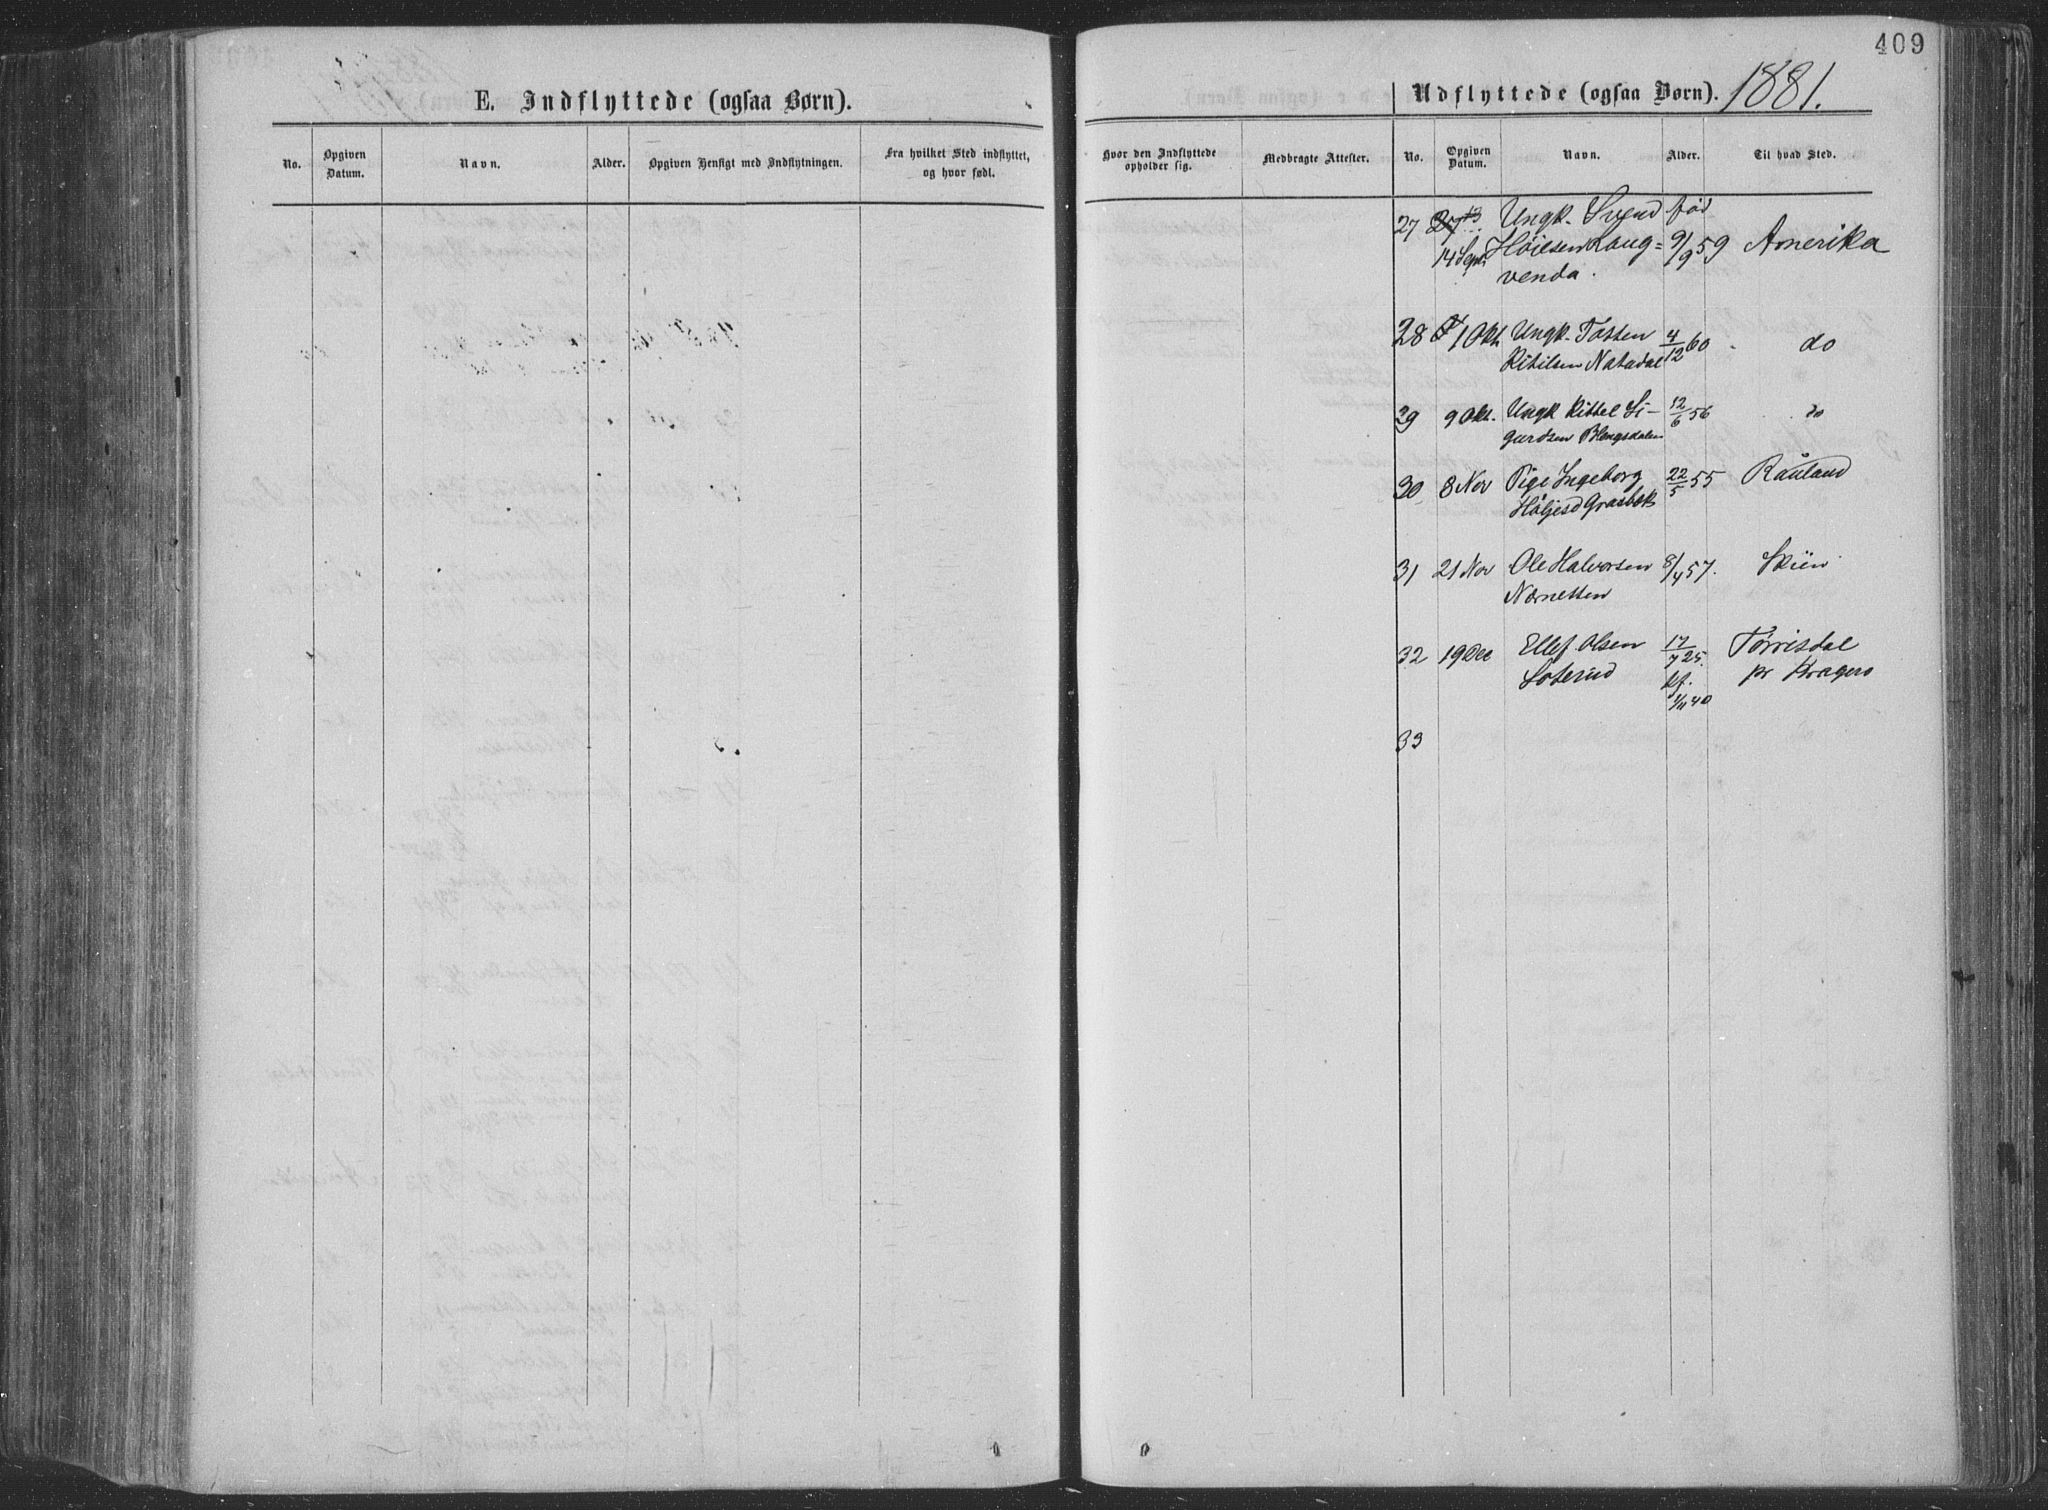 409
E. Indflyttede (ogsaa Børn).
Udflyttede (ogsaa Børn). 1881.
No.
Opgiven
Datum.
Navn.
Alder.
Opgiven Hensigt med Indflytningen.
Fra hvilket Sted indflyttet,
og hvor født.
Hvor den Indflyttede
opholder sig.
Medbragte Attester.
No.
Opgiven
Datum.
Navn.
Alder.
Til hvad Sted.
27 Ungk. Svend fød
14 Sept Høiesen Laug= 9/9 59 Amerika
venda.
28 1 Okt Ungk. Tosten 4/12 60 do
Kitilsen Natadal
29 9 Okt. Ungk Kittel Si- 12/6 56 do
gurdsen Blengsdalen
30 8 Nov Pige Ingeborg 22/5 55 Rauland
Høljesd Grasbæk
31 21 Nov Ole Halvorsen 8/4 57. Skien
Nornetten
32 19 Dec Ellef Olsen 17/7 25. Tørrisdal
Soterud kf. pr Kragerø
1/11 40
33